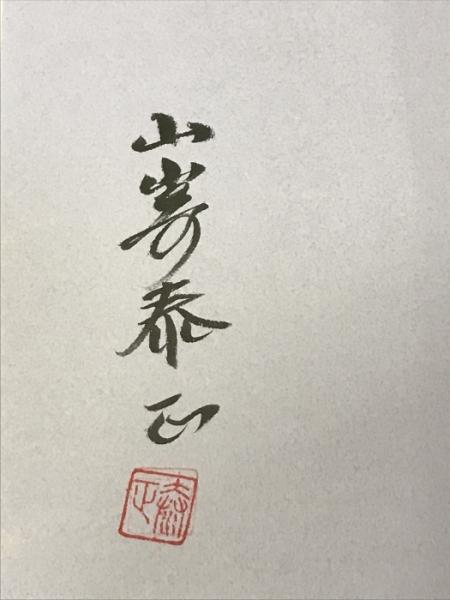 山嵜泰正
泰正